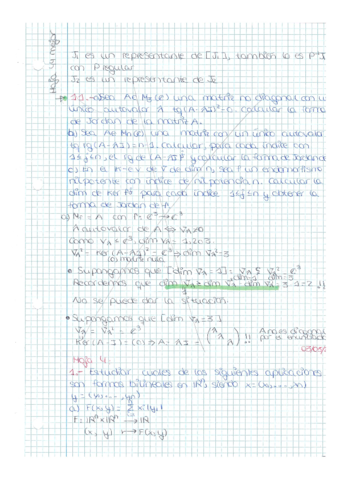 J₁ es un representante de [J₁], también lo es P⁻¹J₁P
con P regular
J₂ es un representante de J₂
Hoja 3ª mejor
a) Sea A∈ M₃(K) una matriz no diagonal con un
único autovalor λ rg(A-λI)²=0. Calcular la forma
de Jordan de la matriz A.
b) Sea A∈Mn(K) una matriz con un único autovalor
λ, rg(A-λI)=n-1. Calcular, para cada índice con
1≤j≤n, el rg de (A-λI)ʲ y calcular la forma de Jordan de
c) En el K-e.v de V de dim n, sea f un endomorfismo
nilpotente con índice de nilpotencia n. Calcular la
dim de Ker fʲ para cada índice 1≤j≤n y obtener la
forma de Jordan de f.
λ autovalor de A ⇔ V_λ≠0
como V_λ ⊂ K³, dim V_λ = 1, 2 o 3
V_λ² = Ker(A-λI)² = K³ ⇒ dim V_λ²=3
(0) matriz nula
• Supongamos que [dim V_λ = 1]: V_λ ⊊ V_λ² = K³
Recordemos que
No se puede dar la situación.
• Supongamos que [dim V_λ=3]
V_λ = V_λ² = K³
A no es diagonal
por el enunciado
Hoja 4
1.- Estudiar cuáles de las siguientes aplicaciones
son formas bilineales en ℝⁿ, siendo x=(x₁,...,xₙ)
y=(y₁,...,yₙ)
F: ℝⁿ×ℝⁿ → ℝ
(x, y) ↦ F(x,y)